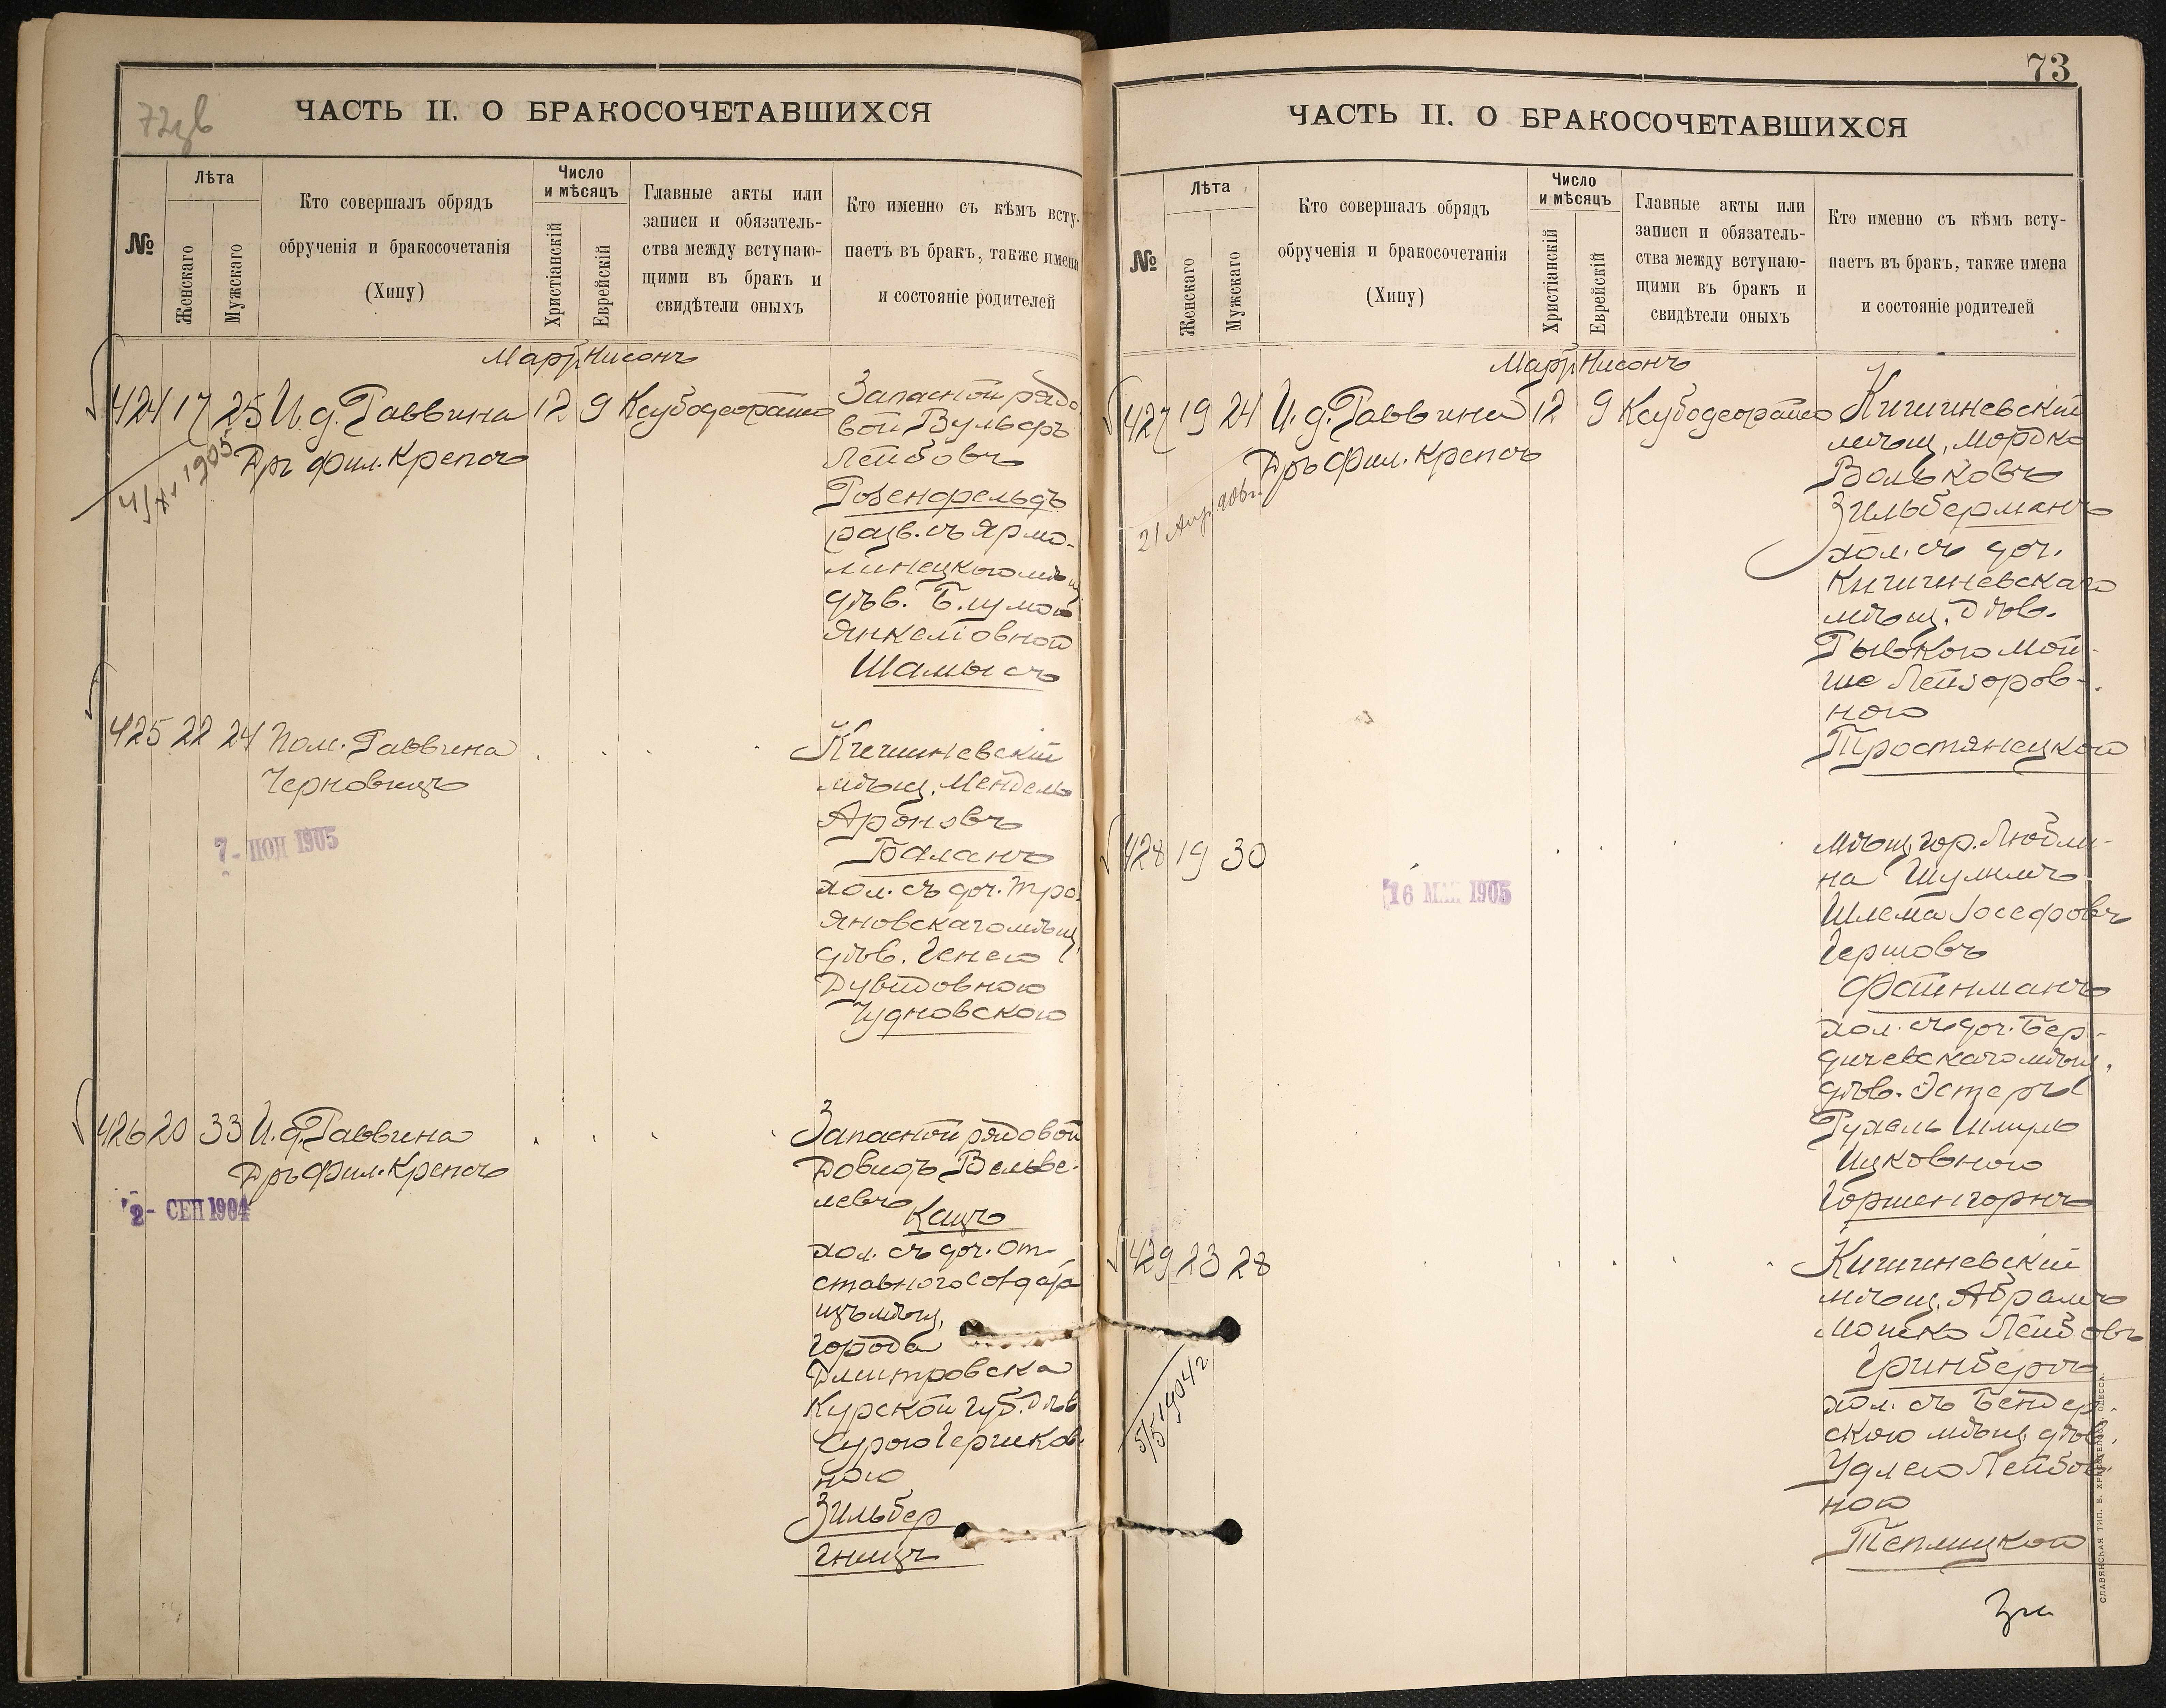 72 об
ЧАСТЬ II. О БРАКОСОЧЕТАВШИХСЯ
№
Лѣта
Женскаго
Мужскаго
Кто совершалъ обрядъ
обрученія и бракосочетанія
(Хипу)
Число
и мѣсяцъ
Христіанскій
Еврейскій
Главные акты или
записи и обязатель-
ства между вступаю-
щими въ бракъ и
свидѣтели оныхъ
Кто именно съ кѣмъ всту-
паетъ въ бракъ, также имена
и состояніе родителей
Мартъ Нисонъ
424 17 25 И. д. Раввина 12 9 Запасной рядо
Дръ Фил. Крепсъ
1905
вой Вульфъ
Лейбовъ
Розенфельдъ
разв. съ Ярмо-
линецкою мѣщ
дѣв. Блумой
Янкелiовной
Шамысъ
425 22 24 Пом. Раввина
Черновицъ
7 - 1905
Кишиневскій
мѣщ. Мендель
Ароновъ
Баланъ
хол. съ доч. Тро
яновскаго мѣщ.
дѣв. Генею
Дувидовною
Чудновскою
426 20 33 И. д. Раввина
Дръ Фил. Крепсъ
2 - СЕП 1904
Запасной рядовой
Довидъ Вельве-
левъ
Кацъ
хол. съ доч. от-
ставного солдата
изъ мѣщ.
города
Дмитровска
Курской губ. дѣв
Сурою Гершков-
ною
Зильбер
гницъ
73
ЧАСТЬ II. О БРАКОСОЧЕТАВШИХСЯ
№
Лѣта
Женскаго
Мужскаго
Кто совершалъ обрядъ
обрученія и бракосочетанія
(Хипу)
Число
и мѣсяцъ
Христіанскій
Еврейскій
Главные акты или
записи и обязатель-
ства между вступаю-
щими въ бракъ и
свидѣтели оныхъ
Кто именно съ кѣмъ всту-
паетъ въ бракъ, также имена
и состояніе родителей
Мартъ Нисонъ
427 19 24 И. д. Раввина 12 9 Кишиневскій
Дръ Фил. Крепсъ
21 Апр. 906г.
мѣщ. Мордко
Вольковъ
Зильберманъ
хол. съ доч.
Кишиневскаго
мѣщ. дѣв.
Рывкою Мой-
ше Лейзоров-
ною
Тростянецкою
428 19 30
16 МАЯ 1905
Мѣщ. гор. Любли-
на Шулимъ
Шлема Іосефовъ
Гершовъ
Файнманъ
хол. съ доч. Бер-
дичевскаго мѣщ.
дѣв. Эстеръ
Рухель Шмуль
Ицковною
Горшенгорнъ
429 23 28
5/5 1904 г.
Кишиневскій
мѣщ. Абрамъ
Мошко Лейбовъ
Гринбергъ
хол. съ Бендер-
скою мѣщ. дѣв.
Удлею Лейбов-
ною
Теплицкой
СЛАВЯНСКАЯ ТИП. Е. ХРИСОГЕЛОСЪ, ОДЕССА.